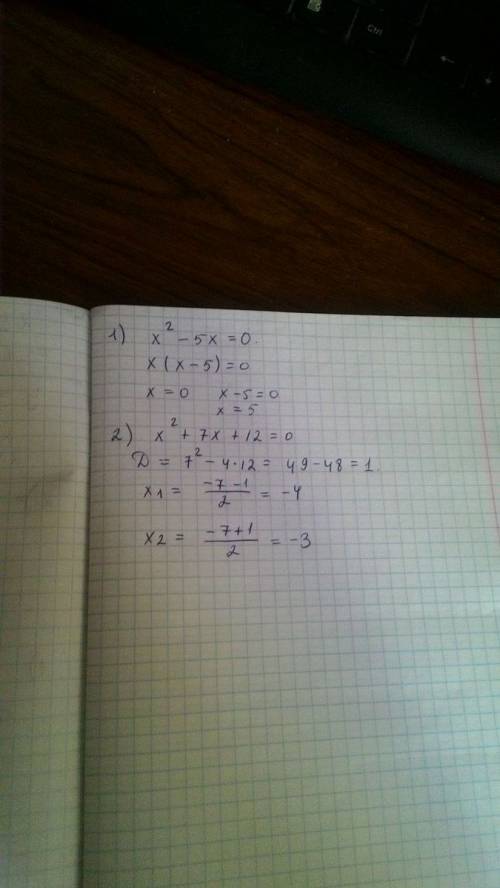 Ctrl
1) x² - 5x = 0.
x(x - 5) = 0
x = 0 x - 5 = 0
x = 5
2) x² + 7x + 12 = 0
D = 7² - 4·12 = 49 - 48 = 1.
x1 = (-7 - 1)/2 = -4
x2 = (-7 + 1)/2 = -3